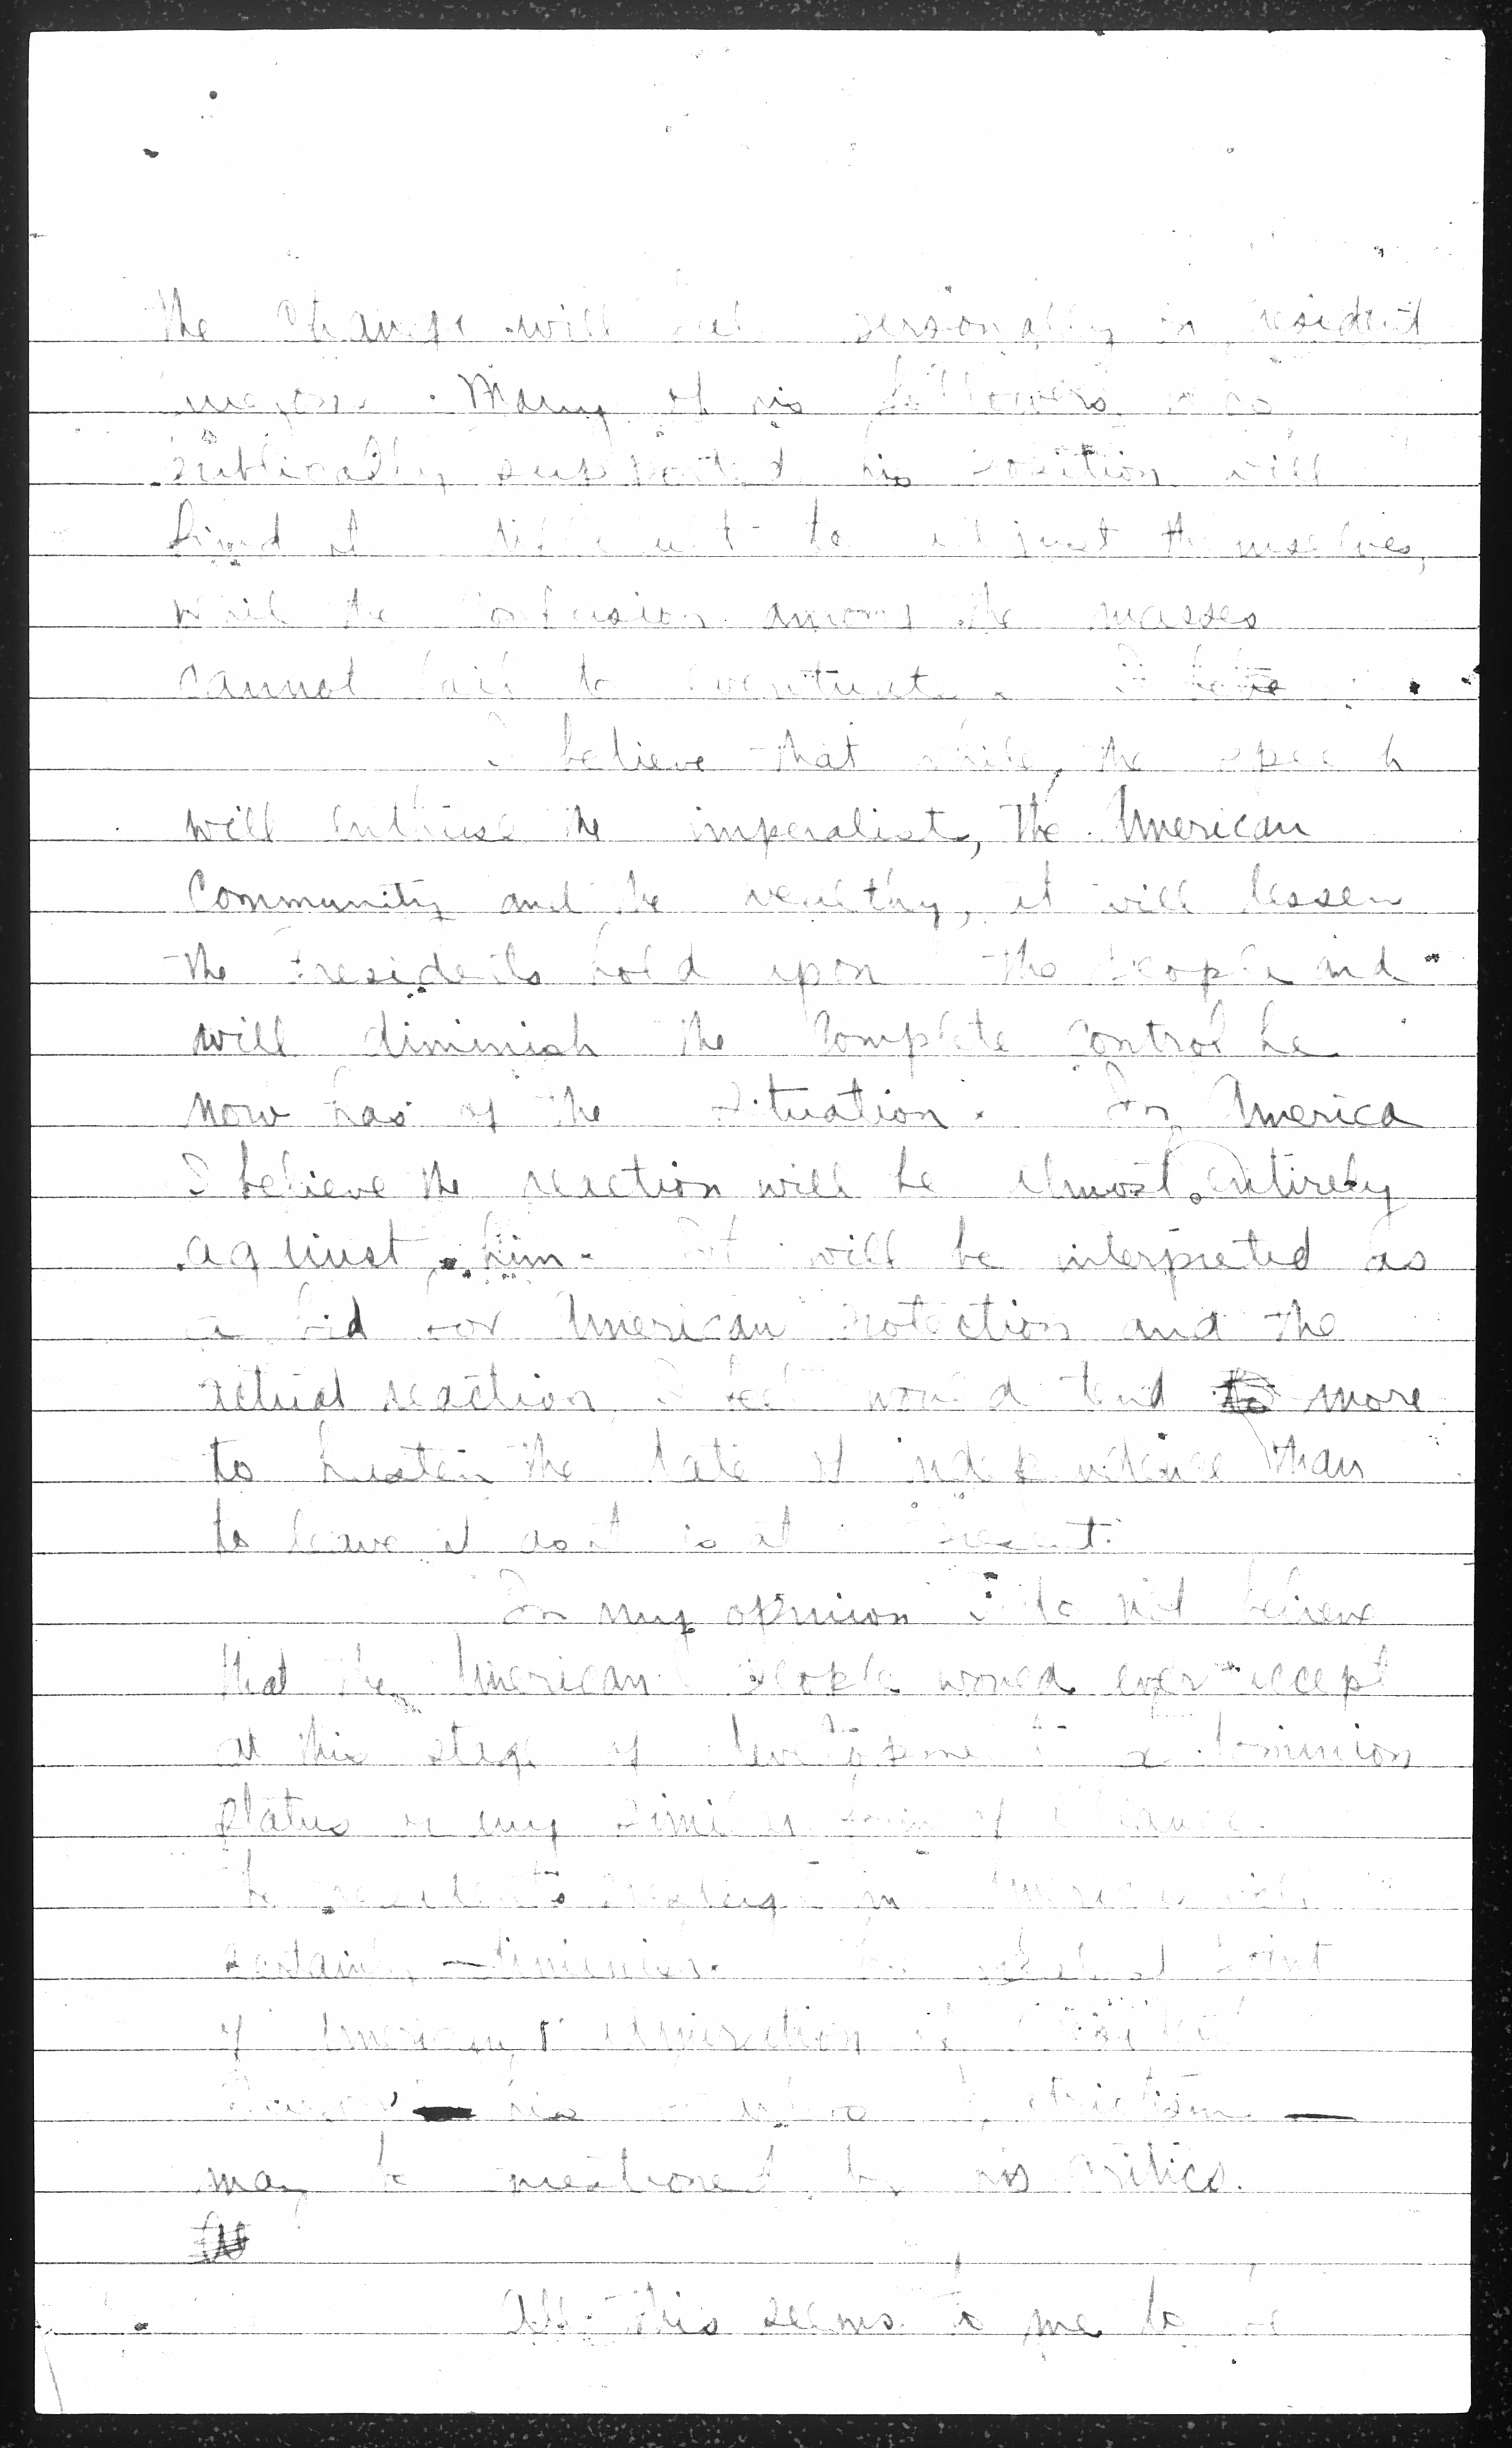 the change will personally in President
Many of his followers who
publically supported his position will
find it difficult to adjust themselves,
while the confusion among the masses
cannot fail to eventuate. I
I believe that while, the speech
will enthuse the imperalists, the American
Community and the wealthy, it will lessen
the Presidents hold upon the people and
will diminish the complete control he
now has of the situation. In America
I believe the reaction will be almost entirely
against him. It will be interpreted as
a bid for American protection and the
actual reaction I feel would tend to more
to hasten the date of independence than
to leave it as it is at present.
In my opinion I do not believe
that the American people would ever accept
at this stage of development a dominion
status or any similar form of alliance.
The Presidents prestige in America will
certainly diminish. The point
of American admiration of
his patriotism —
may be mentioned by his critics.
All this seems to me to be